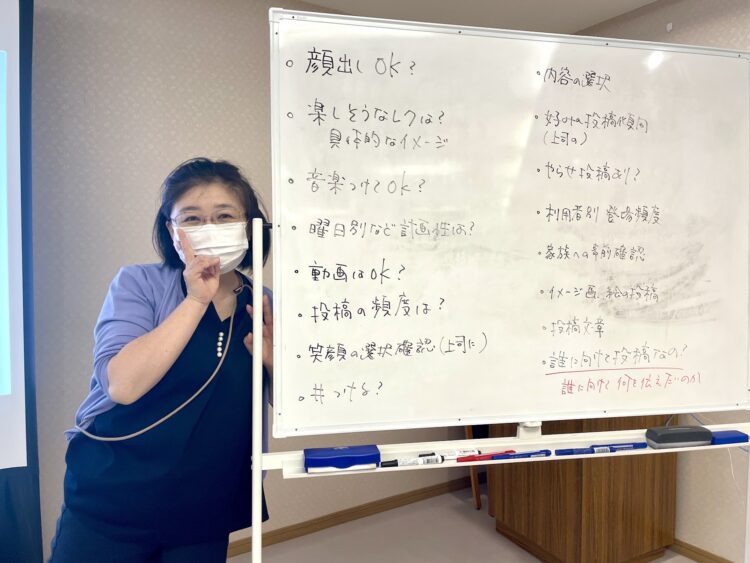 ・顔出しOK？
・楽しそうなレクは？
具体的なイメージ
・音楽つけてOK？
・曜日別など計画性は？
・動画はOK？
・投稿の頻度は？
・笑顔の選択確認（上司に）
・#つける？
・内容の選択
・好みの投稿傾向
（上司の）
・やらせ投稿あり？
・利用者別 登場頻度
・家族への事前確認
・イメージ画、絵の投稿
・投稿文章
・誰に向けて投稿なの？
誰に向けて 何を伝えたいのか